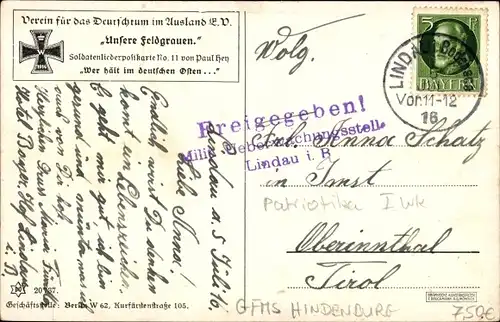 Verein für das Deutschtum im Ausland E.V.
„Unsere Feldgrauen."
Soldatenliederpostkarte No. 11 von Paul Hey
„Wer hält im deutschen Osten..."
5 Pf
BAYERN
LINDAU
Vor. 11-12
16
Wolg.
Frl. Anna Schatz
in Imst
Oberinnthal
Tirol
Freigegeben!
Milit. Ueberwachungsstelle
Lindau i. B.
Lindau d. 5 Juli 16
Liebe Anna!
Endlich wirst Du denken
komt ein Lebenszeichen.
Es geht mir gut ich bin
gesund und munter was ich
auch von Dir hoffe.
Herzliche Grüsse
Hotel Bayer. Hof Lindau
i. B
Patriotika I Wk
20737.
Geschäftsstelle: Berlin W 62, Kurfürstenstraße 105.
GFMS HINDENBURG
7,50€